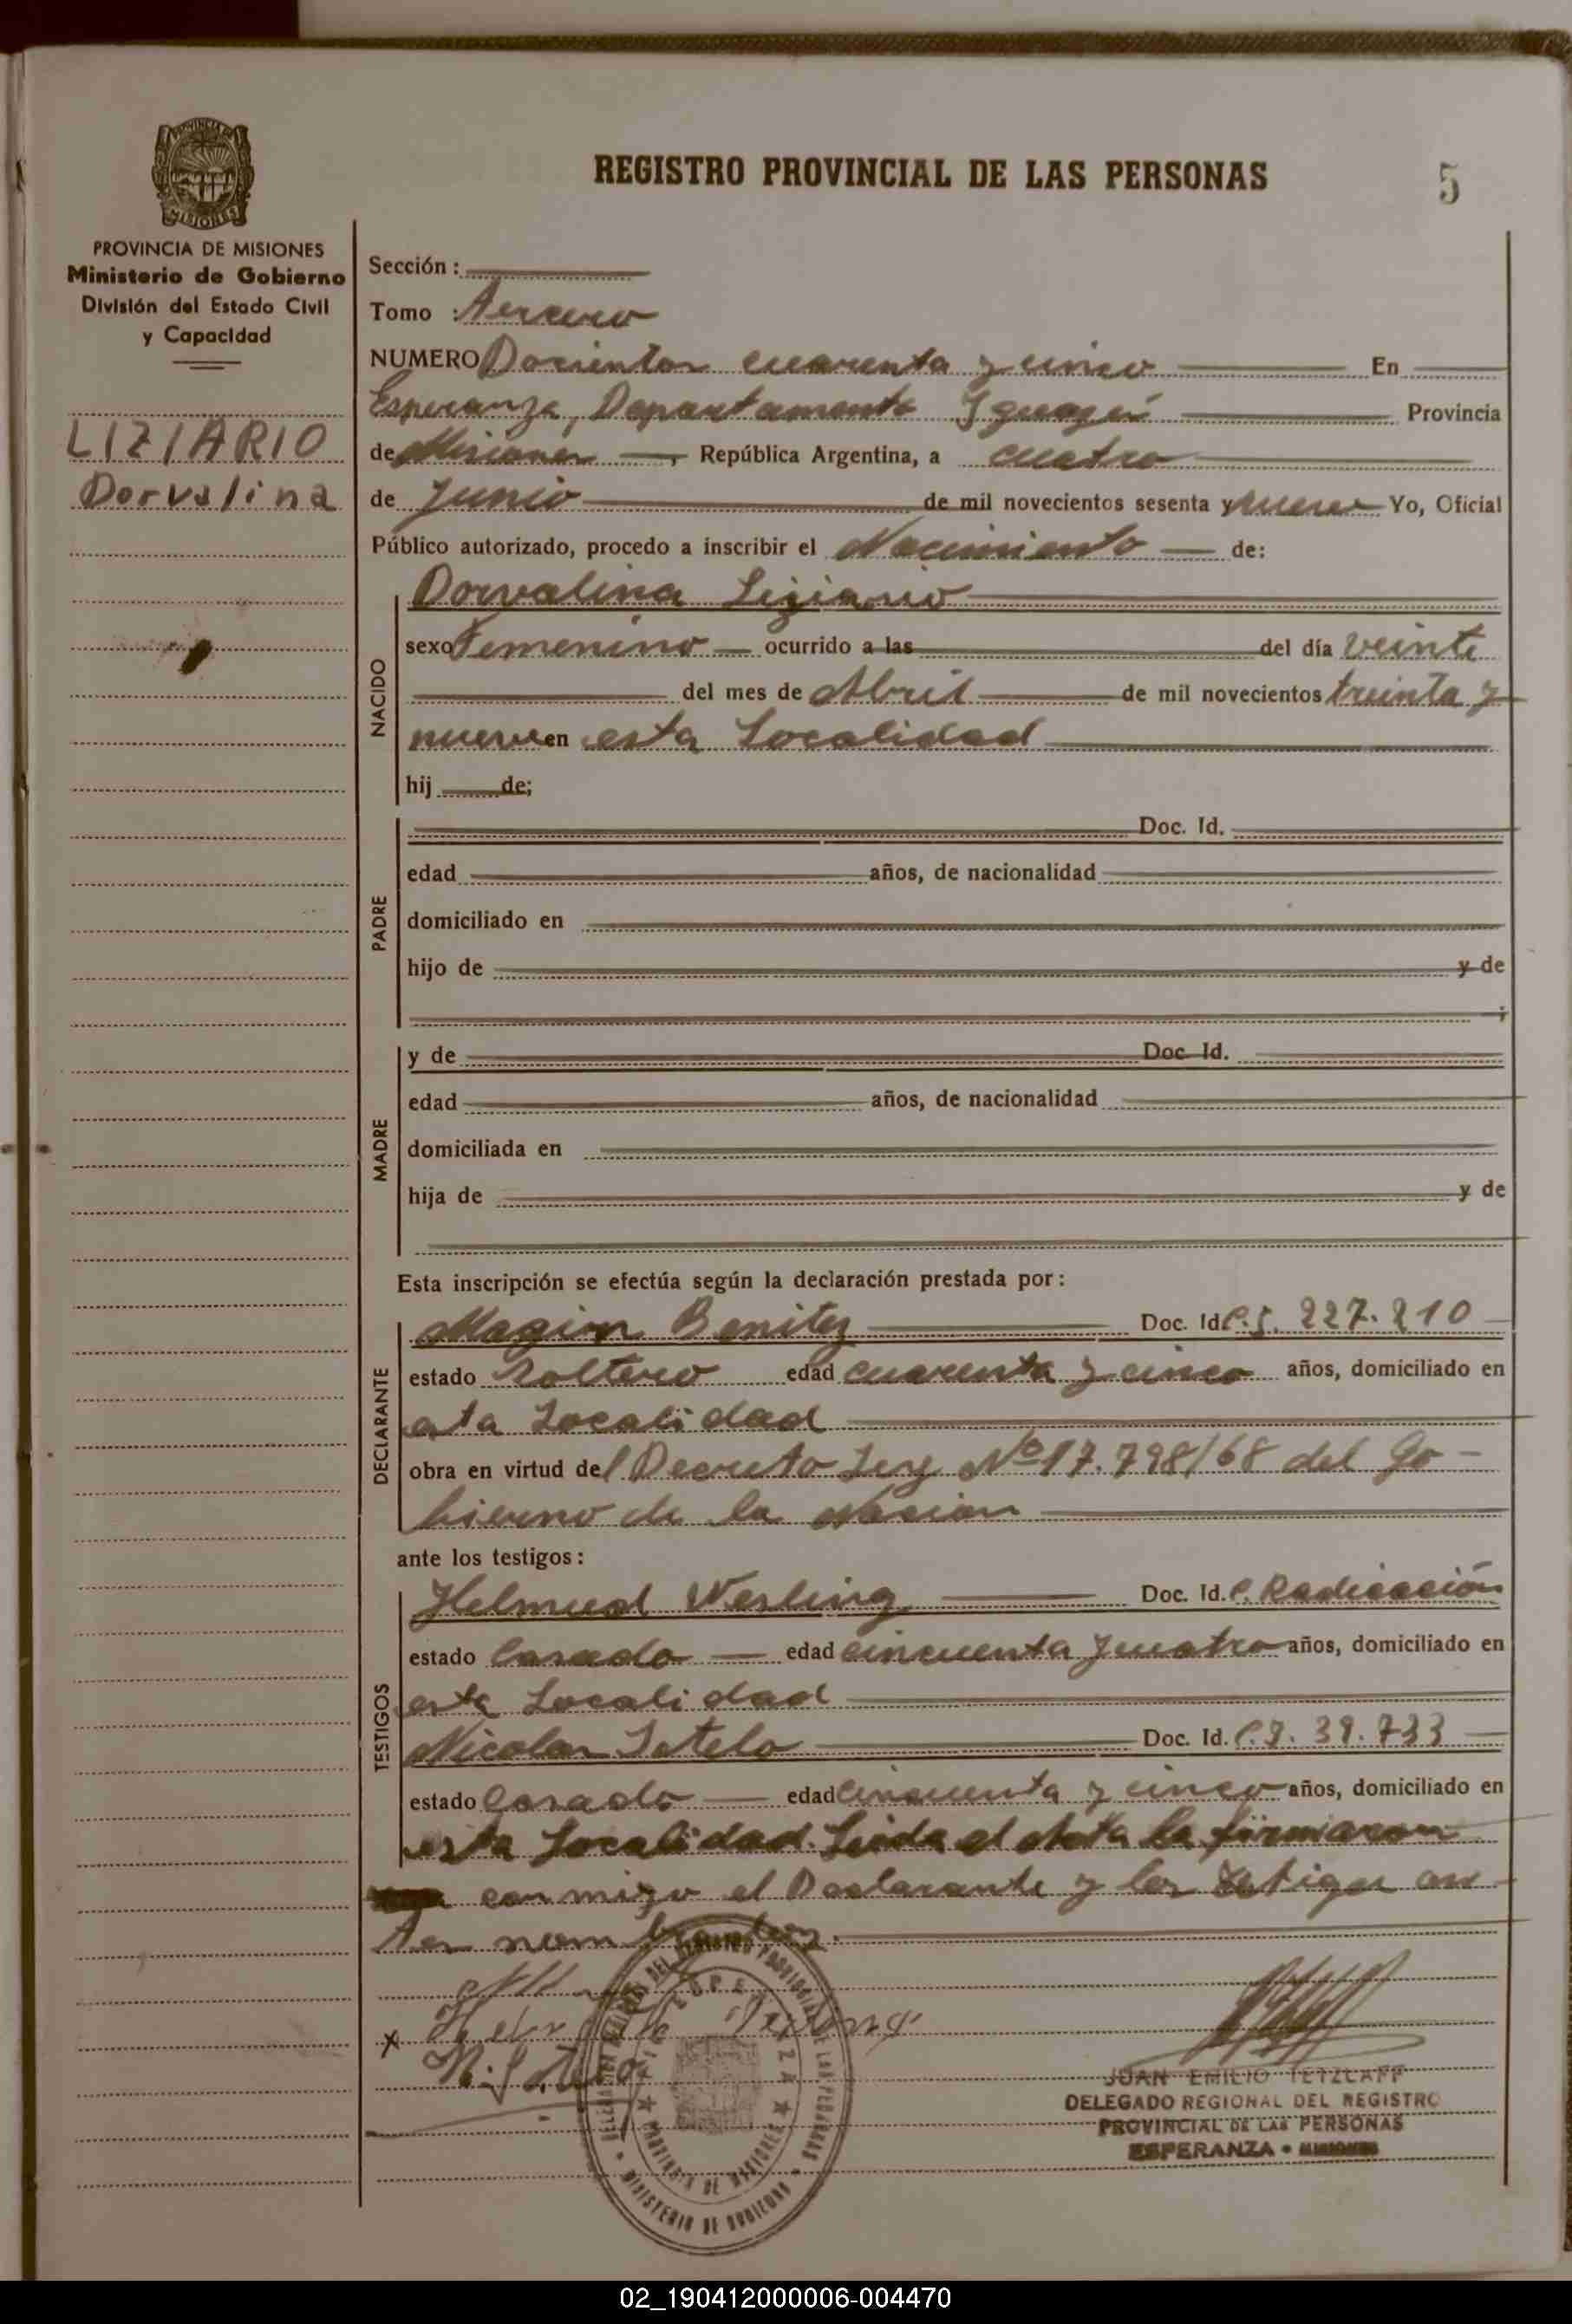 REGISTRO PROVINCIAL DE LAS PERSONAS
5
PROVINCIA DE MISIONES
Ministerio de Gobierno
División del Estado Civil
y Capacidad
LIZIARIO
Dorvalina
Sección :
Tomo : Tercero
NUMERO Docientos cuarenta y cinco En
Esperanza, Departamento Iguazú Provincia
de Misiones, República Argentina, a cuatro
de Junio de mil novecientos sesenta y nueve Yo, Oficial
Público autorizado, procedo a inscribir el Nacimiento de:
NACIDO
Dorvalina Liziario
sexo Femenino ocurrido a las del día veinte
del mes de Abril de mil novecientos treinta y
nueve en esta Localidad
hij de;
PADRE
Doc. Id.
edad años, de nacionalidad
domiciliado en
hijo de y de
;
MADRE
y de Doc. Id.
edad años, de nacionalidad
domiciliada en
hija de y de
Esta inscripción se efectúa según la declaración prestada por :
DECLARANTE
Magin Benitez Doc. Id. 227.210
estado Soltero edad cuarenta y cinco años, domiciliado en
esta Localidad
obra en virtud del Decreto Ley Nº 17.798/68 del Go-
bierno de la Nacion
ante los testigos :
TESTIGOS
Helmud Wesling Doc. Id. C. Radicación
estado Casado edad cincuenta y cuatro años, domiciliado en
esta Localidad
Nicolas Sotelo Doc. Id. C.I. 39.733
estado Casado edad cincuenta y cinco años, domiciliado en
esta Localidad. Leida el Acta la firmaron
conmigo el Declarante y los testigos an-
tes nombrados.
JUAN EMILIO TETZLAFF
DELEGADO REGIONAL DEL REGISTRO
PROVINCIAL DE LAS PERSONAS
ESPERANZA • MISIONES
PROVINCIA DE MISIONES
MINISTERIO DE GOBIERNO
02_190412000006-004470